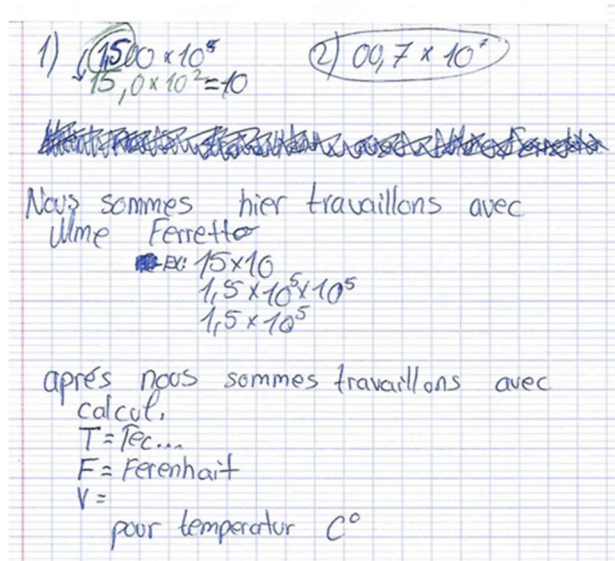 1) 1,500 × 10⁸ 2) 00,7 × 10⁷
15,0 × 10² = 10
Nous sommes hier travaillons avec
Mme Ferretto
EX: 15×10
1,5 × 10⁵ × 10⁵
1,5 × 10⁵
aprés nous sommes travaillons avec
calcul.
T = Tec...
F = Ferenhait
V =
pour temperatur C°